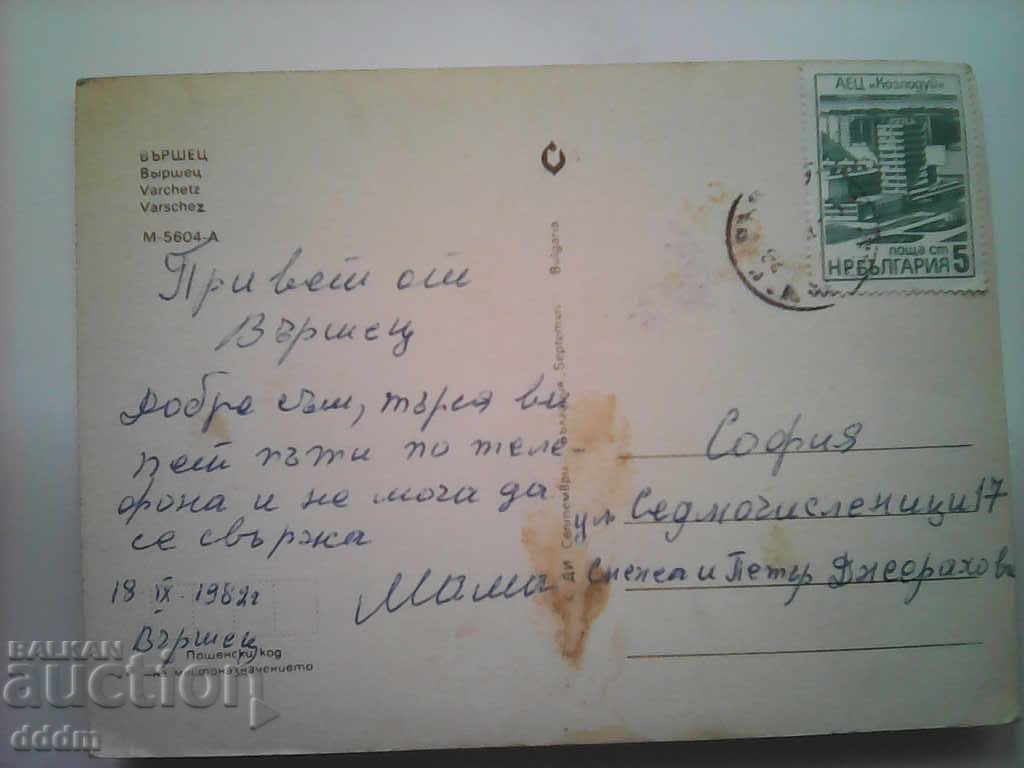 ВЪРШЕЦ
Выршец
Varchetz
Varschez
М-5604-А
Привет от
Вършец
Добре съм, търся ви
пет пъти по теле-
фона и не мога да
се свържа
Мама
18 IX 1982г
Вършец
Пощенски код
на местоназначението
ДИ Септември България Septemvri Bulgaria
АЕЦ „Козлодуй“
поща ст
НР БЪЛГАРИЯ 5
София
ул Седмочисленици 17
Снежа и Петър
BALKAN
auction
dddm